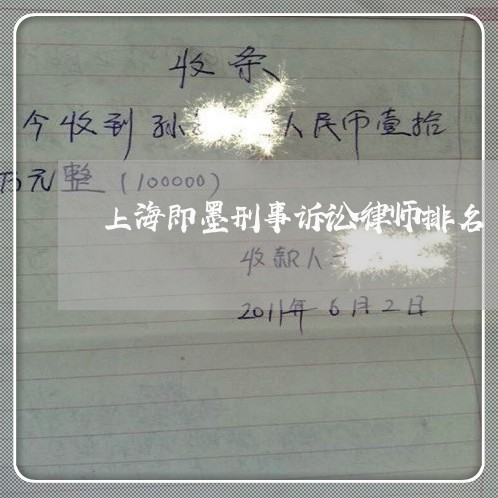 收条
今收到孙 人民币壹拾
万元整（100000）
上海即墨刑事诉讼律师排名
收款人
2011年6月2日